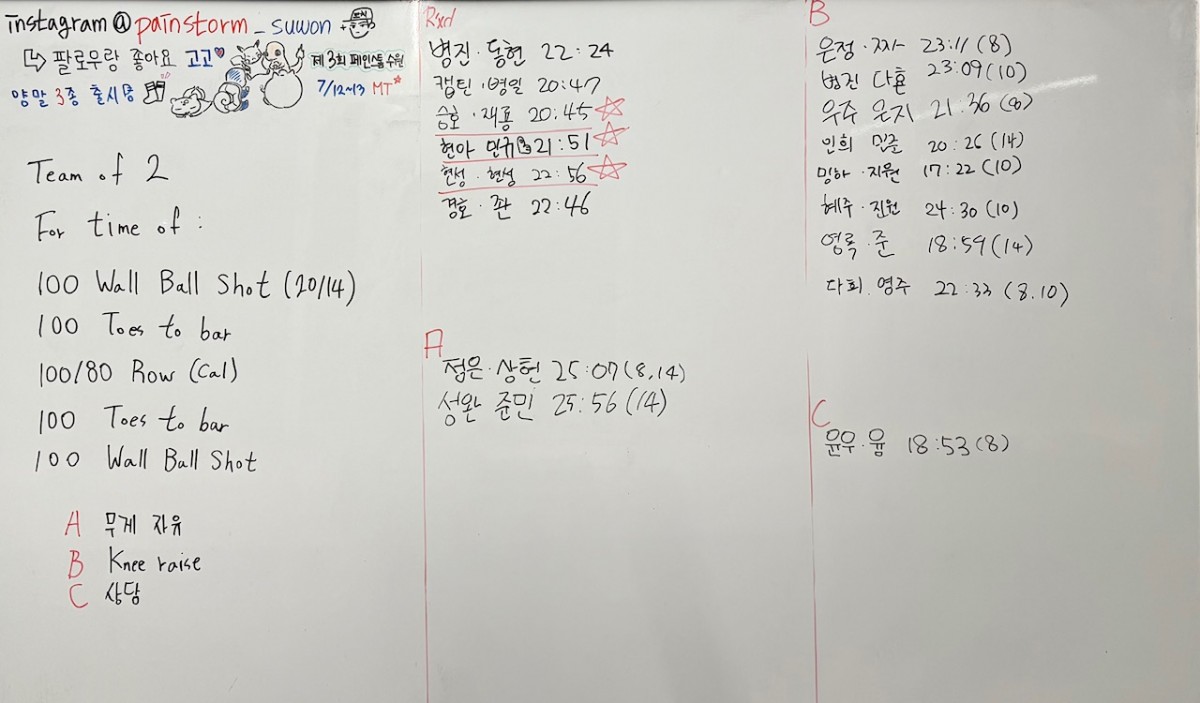 instagram@painstorm_suwon
↳ 팔로우랑 좋아요 고고♥
양말 3종 출시중
제3회 페인스톰수원
7/12~13 MT☆
Team of 2
For time of:
100 Wall Ball Shot (20/14)
100 Toes to bar
100/80 Row (Cal)
100 Toes to bar
100 Wall Ball Shot
A 무게 자유
B Knee raise
C 상담
Rxd
병진·동현 22:24
캡틴·병일 20:47
승호·재룡 20:45 ☆
현아 민규 21:51 ☆
현성·현성 22:56 ☆
경호·좐 22:46
A
점은·상헌 25:07 (8,14)
성완 준민 25:56 (14)
B
은정·짜 23:11 (8)
병진 다훈 23:09 (10)
우주 은지 21:36 (8)
인희 민글 20:26 (14)
밍하·지원 17:22 (10)
혜주·진원 24:30 (10)
영록·준 18:59 (14)
다희·영주 22:33 (8,10)
C
윤우·윰 18:53 (8)